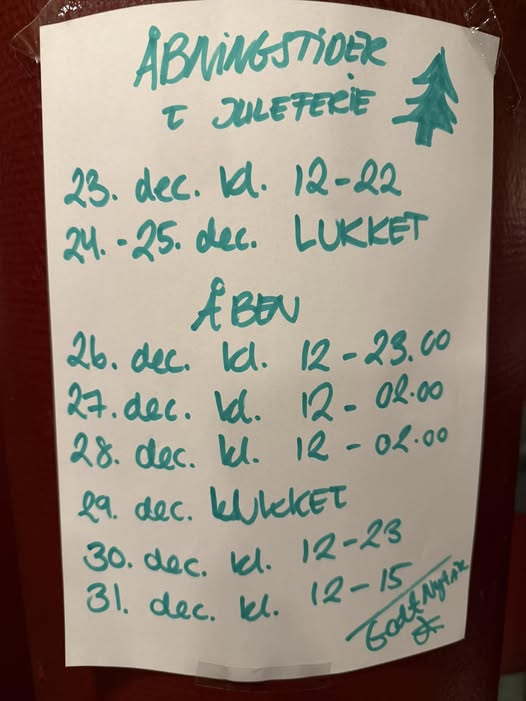 ÅBNINGSTIDER
I JULEFERIE
23. dec. kl. 12-22
24.-25. dec. LUKKET
ÅBEN
26. dec. kl. 12-23.00
27. dec. kl. 12-02.00
28. dec. kl. 12-02.00
29. dec. LUKKET
30. dec. kl. 12-23
31. dec. kl. 12-15
Godt Nytår